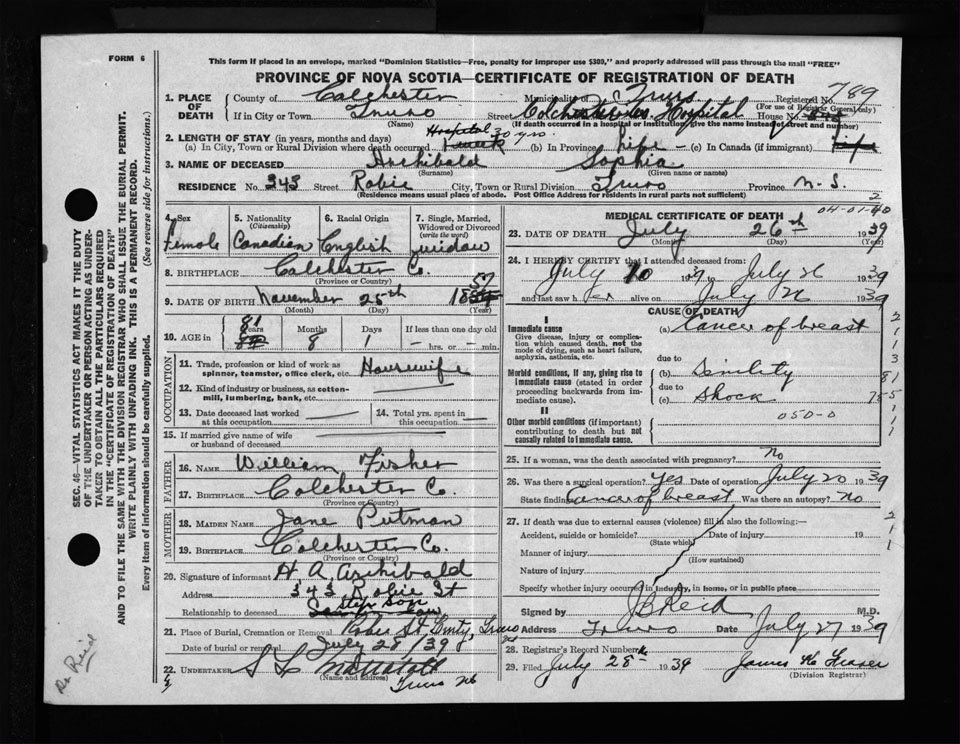 FORM 6
This form if placed in an envelope, marked "Dominion Statistics—Free, penalty for improper use $300," and properly addressed will pass through the mail "FREE"
PROVINCE OF NOVA SCOTIA—CERTIFICATE OF REGISTRATION OF DEATH
789
1. PLACE OF DEATH County of Colchester Municipality of Truro Registered No.
(For use of Registrar General only)
If in City or Town Truro Street Hospital House No.
(Name) (If death occurred in a hospital or institution, give the name instead of street and number)
2. LENGTH OF STAY (in years, months and days) Hospital 30 yrs
(a) In City, Town or Rural Division where death occurred (b) In Province Life (c) In Canada (if immigrant)
3. NAME OF DECEASED Archibald Sophia
(Surname) (Given name or names)
RESIDENCE No. 343 Street Robie City, Town or Rural Division Truro Province N.S.
(Residence means usual place of abode. Post Office Address for residents in rural parts not sufficient)
4. Sex 5. Nationality (Citizenship) 6. Racial Origin 7. Single, Married, Widowed or Divorced (write the word)
Female Canadian English widow
8. BIRTHPLACE Colchester Co.
(Province or Country)
9. DATE OF BIRTH November 25th 18 57
(Month) (Day) (Year)
10. AGE in 81 Years 8 Months 1 Days If less than one day old
hrs. or min.
OCCUPATION
11. Trade, profession or kind of work as spinner, teamster, office clerk, etc. Housewife
12. Kind of industry or business, as cotton-mill, lumbering, bank, etc.
13. Date deceased last worked at this occupation 14. Total yrs. spent in this occupation
15. If married give name of wife or husband of deceased
FATHER
16. NAME William Fisher
17. BIRTHPLACE Colchester Co.
(Province or Country)
MOTHER
18. MAIDEN NAME Jane Putman
19. BIRTHPLACE Colchester Co.
(Province or Country)
20. Signature of informant H A Archibald
Address 343 Robie St
Relationship to deceased Step Son
21. Place of Burial, Cremation or Removal Robie St. Cemty, Truro
Date of burial or removal July 28/39
22. UNDERTAKER
(Name and address)
Truro NS
MEDICAL CERTIFICATE OF DEATH
04-01-40
23. DATE OF DEATH July 26th 1939
(Month) (Day) (Year)
24. I HEREBY CERTIFY that I attended deceased from:
July 10 1939 to July 26 1939
and last saw her alive on July 26 1939
CAUSE OF DEATH
I
Immediate cause (a) Cancer of breast
Give disease, injury or complication which caused death, not the mode of dying, such as heart failure, asphyxia, asthenia, etc.
due to
Morbid conditions, if any, giving rise to immediate cause (stated in order proceeding backwards from immediate cause). (b) Senility
due to
(c) Shock
II
050-0
Other morbid conditions (if important) contributing to death but not causally related to immediate cause.
25. If a woman, was the death associated with pregnancy? No
26. Was there a surgical operation? Yes Date of operation July 20 1939
State findings Cancer of breast Was there an autopsy? No
27. If death was due to external causes (violence) fill in also the following:—
Accident, suicide or homicide? Date of injury 19
(State which)
Manner of injury
(How sustained)
Nature of injury
Specify whether injury occurred in industry, in home, or in public place
Signed by J B Reid M.D.
Address Truro Date July 27 1939
28. Registrar's Record Number
29. Filed July 28 1939 James K Fraser
(Division Registrar)
SEC. 46—VITAL STATISTICS ACT MAKES IT THE DUTY OF THE UNDERTAKER OR PERSON ACTING AS UNDERTAKER TO OBTAIN ALL THE PARTICULARS REQUIRED IN THE "CERTIFICATE OF REGISTRATION OF DEATH" AND TO FILE THE SAME WITH THE DIVISION REGISTRAR WHO SHALL ISSUE THE BURIAL PERMIT.
WRITE PLAINLY WITH UNFADING INK. THIS IS A PERMANENT RECORD.
Every item of information should be carefully supplied. (See reverse side for instructions.)
Dr Reid